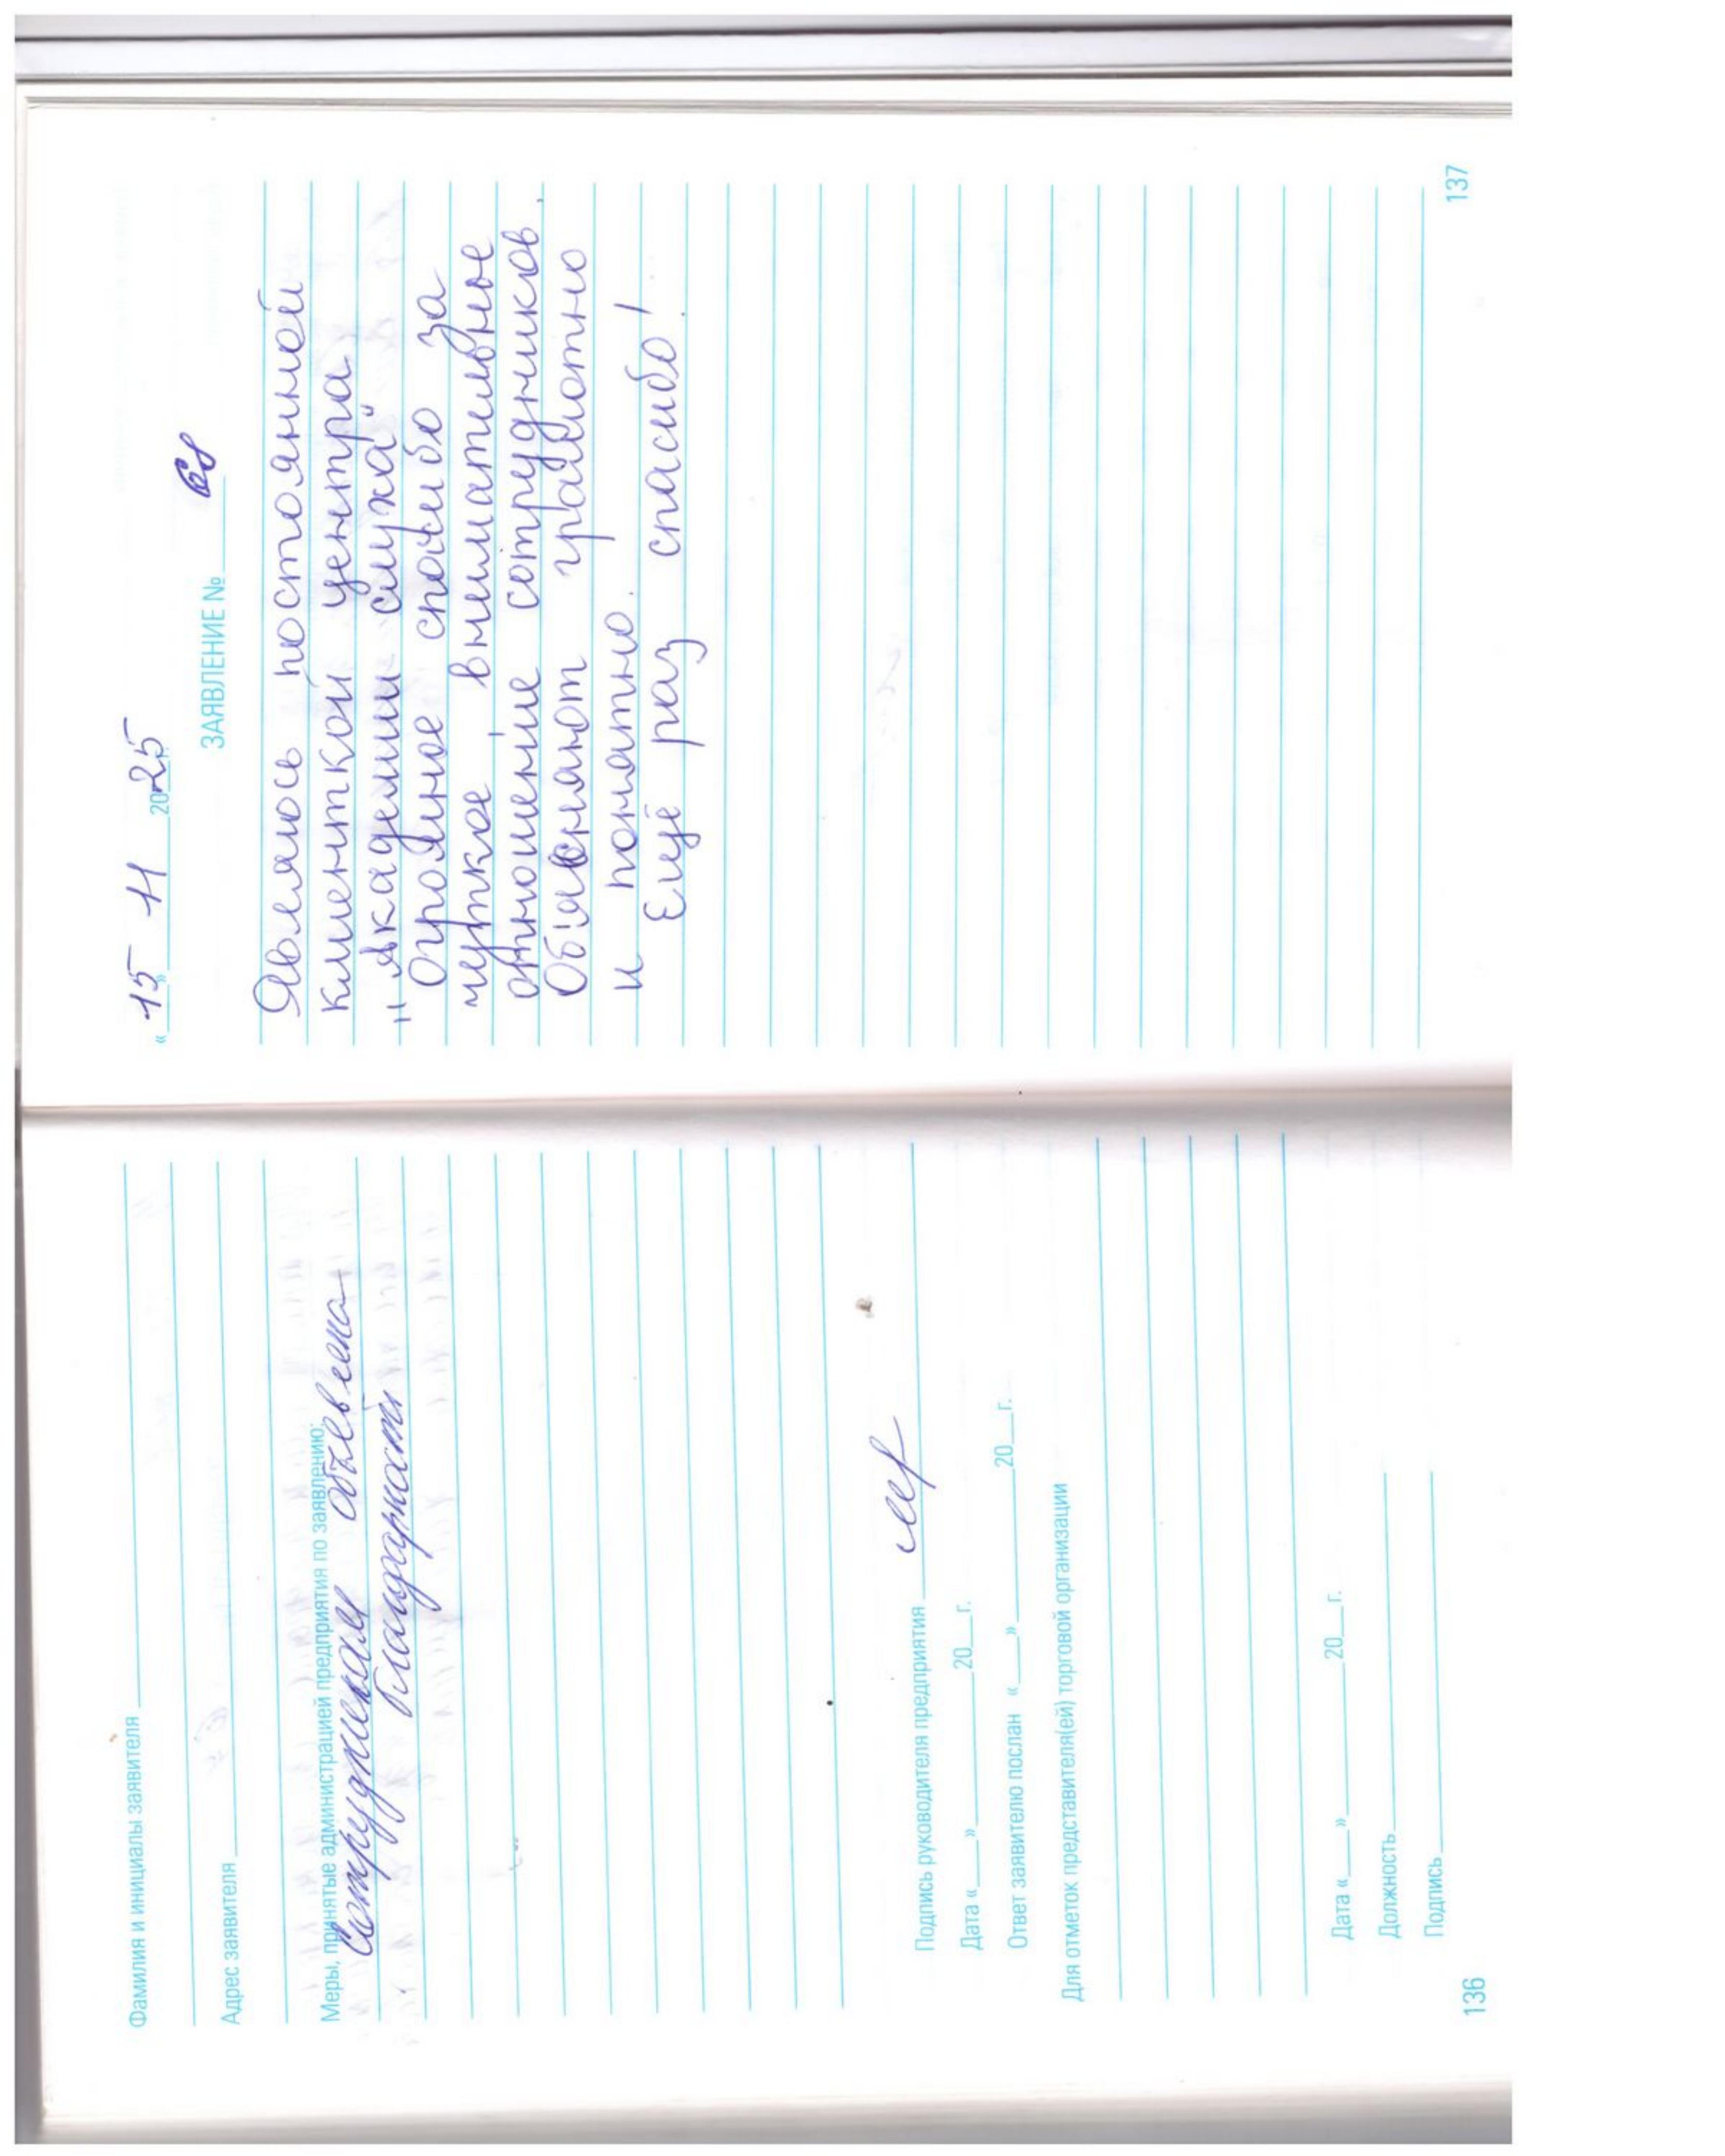 Фамилия и инициалы заявителя
Адрес заявителя
Меры, принятые администрацией предприятия по заявлению:
Сотрудникам объявлена
благодарность
Подпись руководителя предприятия
Дата «___»________20__г.
Ответ заявителю послан «___»________20__г.
Для отметок представителя(ей) торговой организации
Дата «___»________20__г.
Должность
Подпись
136
«15» 11 2025
ЗАЯВЛЕНИЕ № 68
Являюсь постоянной
клиенткой центра
"Академии слуха"
Огромное спасибо за
чуткое, внимательное
отношение сотрудников.
Объясняют грамотно
и понятно.
Ещё раз спасибо!
137